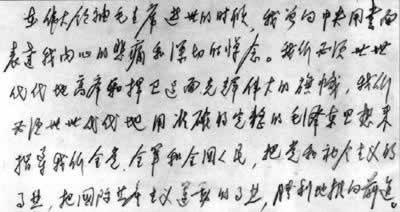 在伟大领袖毛主席逝世的时候,我曾向中央用书面
表达我内心的悲痛和深切的悼念。我们必须世世
代代地高举和捍卫这面光辉伟大的旗帜,我们
必须世世代代地用准确的完整的毛泽东思想来
指导我们全党、全军和全国人民,把党和社会主义的
事业,把国际共产主义运动的事业,胜利地推向前进。